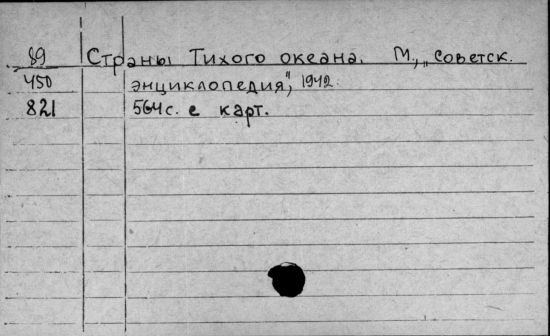 89 Страны Тихого океана. М., „советск.
450 энциклопедия", 1942.
821 564 с. с карт.